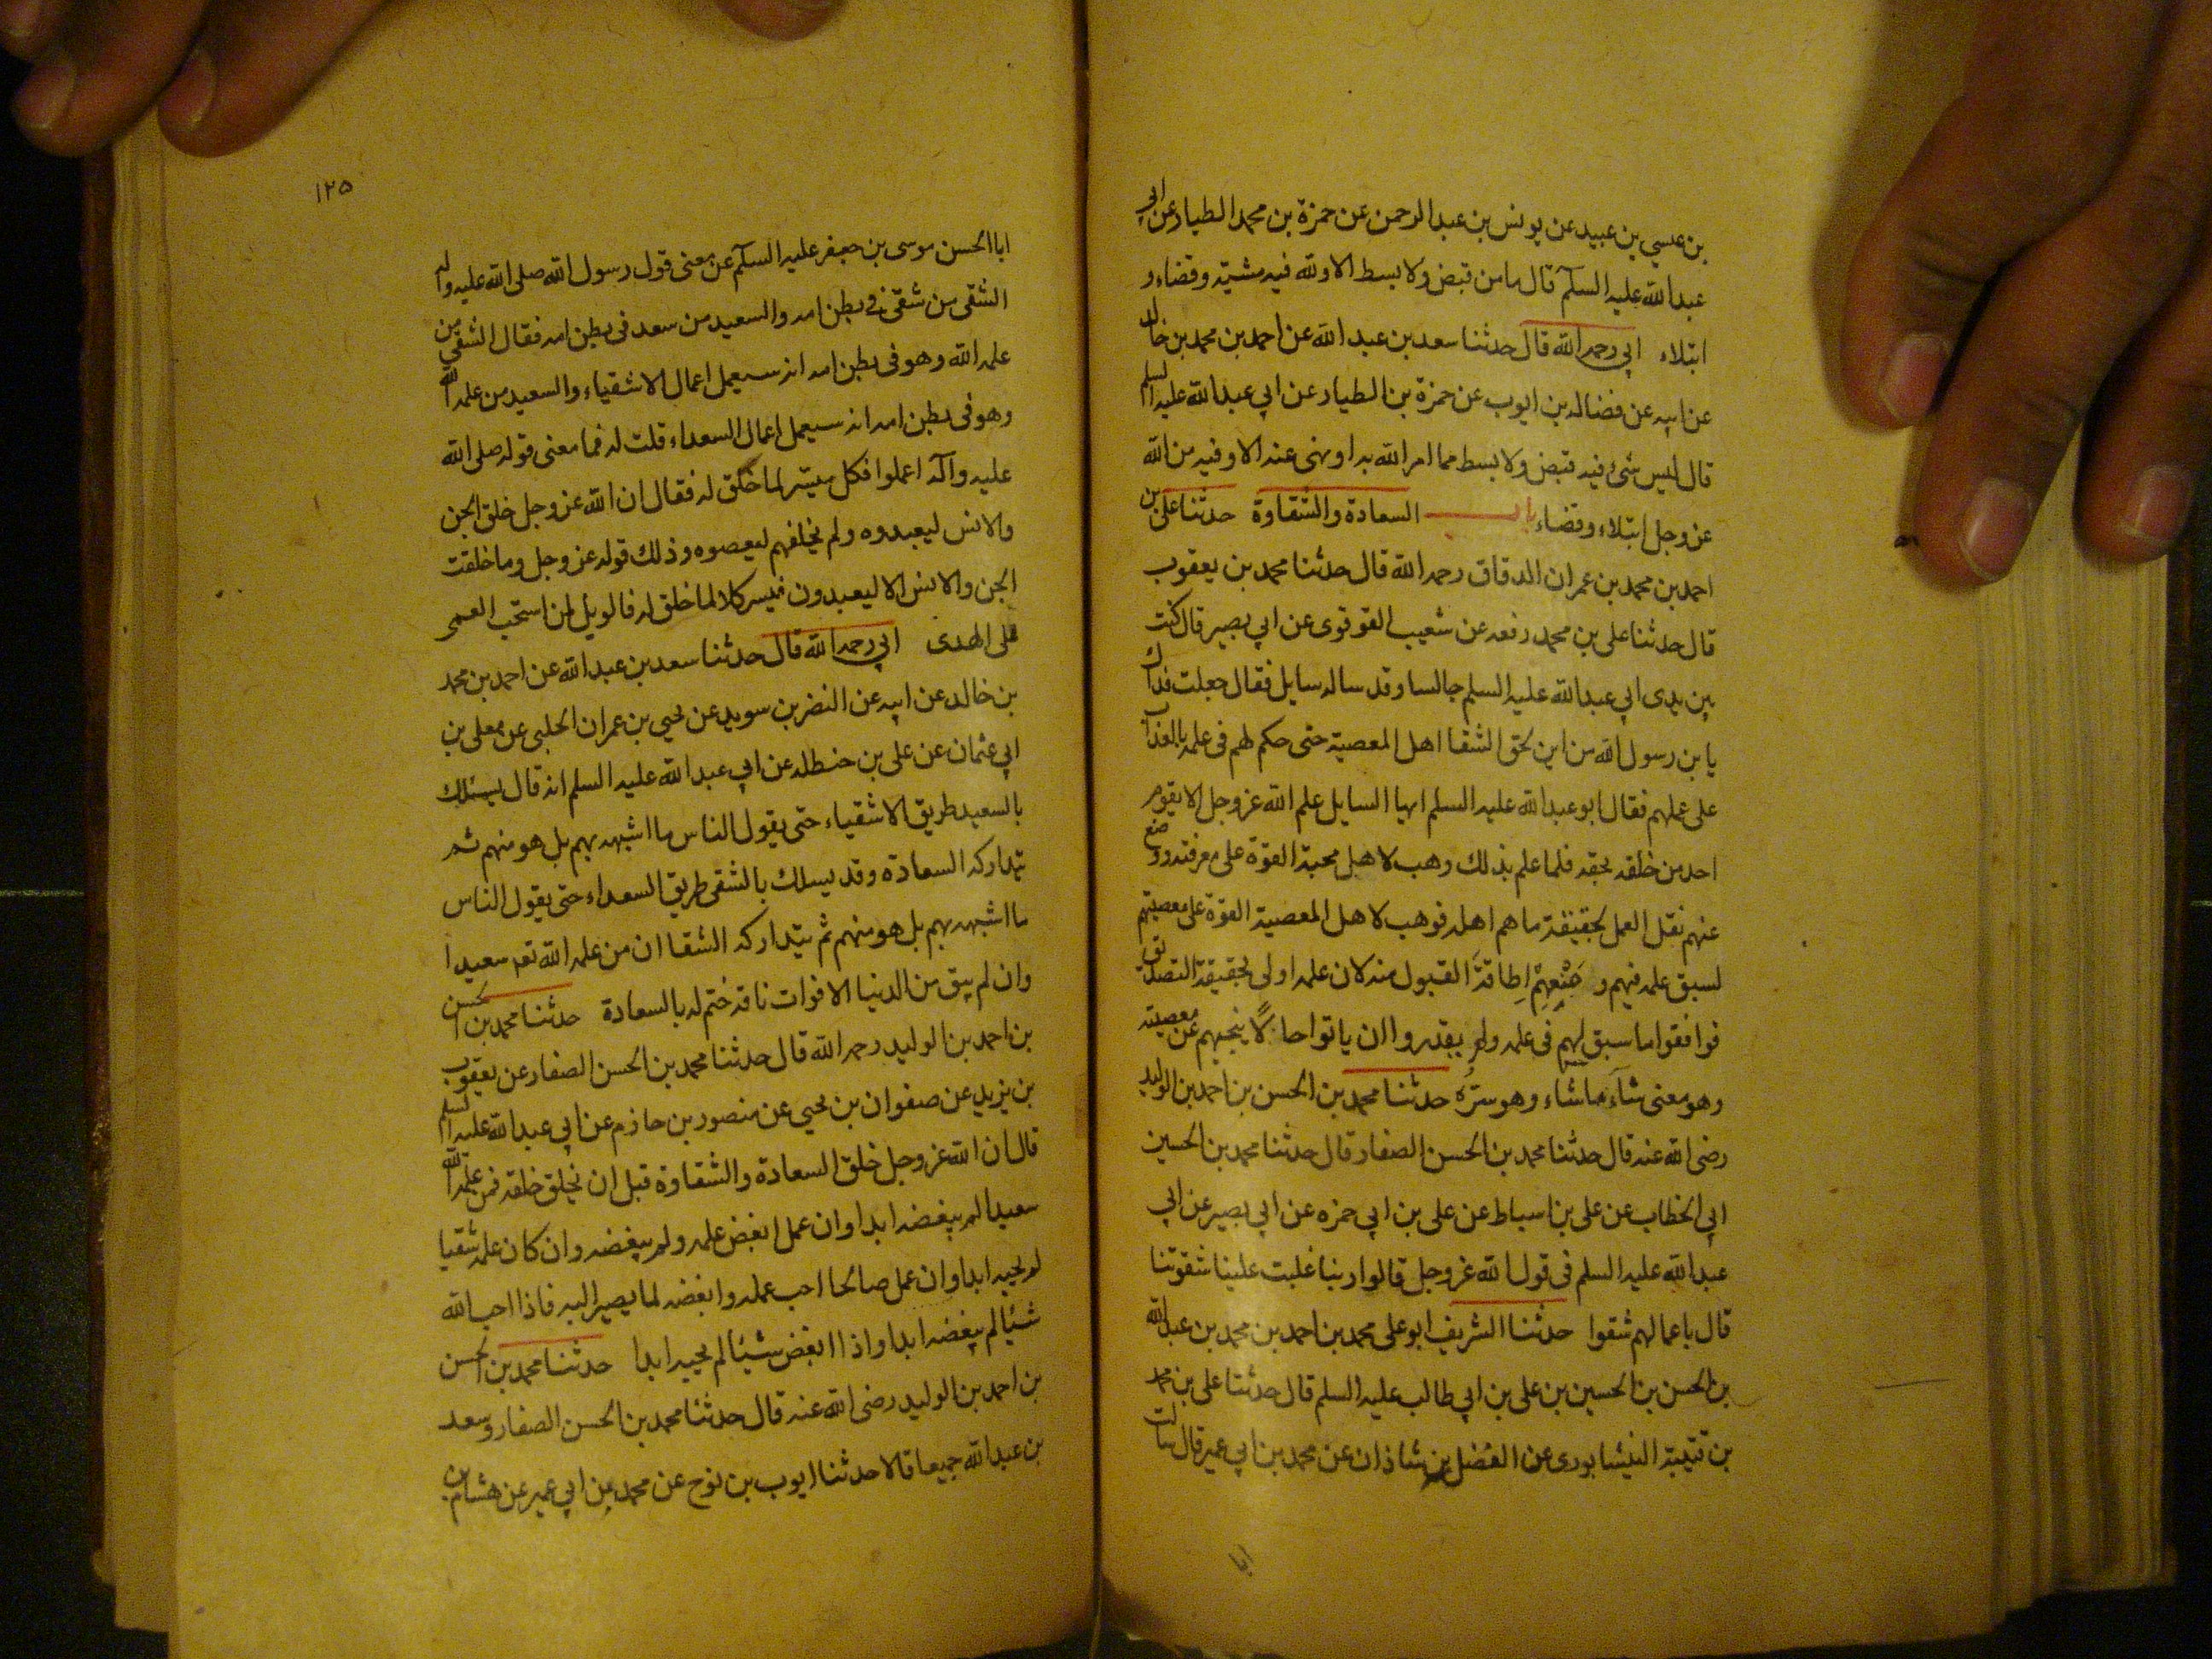 بن عيسي بن عبيد عن يونس بن عبد الرحمن عن حمزة بن محمد الطيار عن ابي
عبد الله عليه السلم قال ما من قبض ولا بسط الا ولله فيه مشية وقضاء و
ابتلاء ابي رحمه الله قال حدثنا سعد بن عبد الله عن احمد بن محمد بن خالد
عن ابيه عن فضاله بن ايوب عن حمزة بن الطيار عن ابي عبد الله عليه السلم
قال ليس شئ فيه قبض ولا بسط مما امر الله به او نهى عنه الا وفيه من الله
عز وجل ابتلاء وقضاء باب السعادة والشقاوة حدثنا على بن
احمد بن محمد بن عمران الدقاق رحمه الله قال حدثنا محمد بن يعقوب
قال حدثنا على بن محمد رفعه عن شعيب العقرقوى عن ابي بصير قال كنت
بين يدى ابي عبد الله عليه السلم جالسا وقد ساله سايل فقال جعلت فداك
يا بن رسول الله من اين لحق الشقا اهل المعصية حتى حكم لهم فى علمه بالعذاب
على عملهم فقال ابو عبد الله عليه السلم ايها السايل علم الله عز وجل الا يقوم
احد من خلقه بحقه فلما علم بذلك وهب لاهل محبة القوة على معرفته ووضع
عنهم ثقل العمل بحقيقة ما هم اهله فوهب لاهل المعصية القوة على معصيتهم
لسبق علمه فيهم و اطاقة القبول منه لان علمه اولى بحقيقة التصديق
فوافقوا ما سبق لهم فى علمه ولم يقدروا ان ياتوا حالا ينجيهم عن معصيته
وهو معنى شآء ما شاء وهو سره حدثنا محمد بن الحسن بن احمد بن الوليد
رضى الله عنه قال حدثنا محمد بن الحسن الصفار قال حدثنا محمد بن الحسين
ابي الخطاب عن على بن اسباط عن على بن ابي حمزه عن ابي بصير عن ابي
عبد الله عليه السلم فى قول الله عز وجل قالوا ربنا غلبت علينا شقوتنا
قال باعمالهم شقوا حدثنا الشريف ابو على محمد بن احمد بن محمد بن عبد الله
بن الحسن بن الحسين بن على بن ابي طالب عليه السلم قال حدثنا على بن محمد
بن قتيبة النيشابورى عن الفضل بن شاذان عن محمد بن ابي عمير قال سالت
ابا
١٢٥
ابا الحسن موسى بن جعفر عليه السلم عن معنى قول رسول الله صلى الله عليه واله
الشقى من شقى فى بطن امه والسعيد من سعد فى بطن امه فقال الشقى من
علم الله وهو فى بطن امه انه سيعمل اعمال الاشقياء والسعيد من علم الله
وهو فى بطن امه انه سيعمل اعمال السعداء قلت له فما معنى قوله صلى الله
عليه وآله اعملوا فكل ميسر لما خلق له فقال ان الله عز وجل خلق الجن
والانس ليعبدوه ولم يخلقهم ليعصوه وذلك قوله عز وجل وما خلقت
الجن والانس الا ليعبدون فيسر كلا لما خلق له فالويل لمن استحب العمى
على الهدى ابي رحمه الله قال حدثنا سعد بن عبد الله عن احمد بن محمد
بن خالد عن ابيه عن النضر بن سويد عن يحيى بن عمران الحلبى عن معلى بن
ابي عثمان عن على بن حنظله عن ابي عبد الله عليه السلم انه قال يسلك
بالسعيد طريق الاشقياء حتى يقول الناس ما اشبهه بهم بل هو منهم ثم
يتداركه السعادة وقد يسلك بالشقى طريق السعداء حتى يقول الناس
ما اشبهه بهم بل هو منهم ثم يتداركه الشقا ان من علمه الله تع سعيدا
وان لم يبق من الدنيا الا فواق ناقة ختم له بالسعادة حدثنا محمد بن الحسن
بن احمد بن الوليد رحمه الله قال حدثنا محمد بن الحسن الصفار عن يعقوب
بن يزيد عن صفوان بن يحيى عن منصور بن حازم عن ابي عبد الله عليه السلم
قال ان الله عز وجل خلق السعادة والشقاوة قبل ان يخلق خلقه فمن علمه الله
سعيدا لم يبغضه ابدا وان عمل ابغض عمله ولم يبغضه وان كان علمه شقيا
لم يحبه ابدا وان عمل صالحا احب عمله وابغضه لما يصير اليه فاذا احب الله
شيئا لم يبغضه ابدا واذا ابغض شيئا لم يحبه ابدا حدثنا محمد بن الحسن
بن احمد بن الوليد رضى الله عنه قال حدثنا محمد بن الحسن الصفار وسعد
بن عبد الله جميعا قالا حدثنا ايوب بن نوح عن محمد بن ابي عمير عن هشام بن